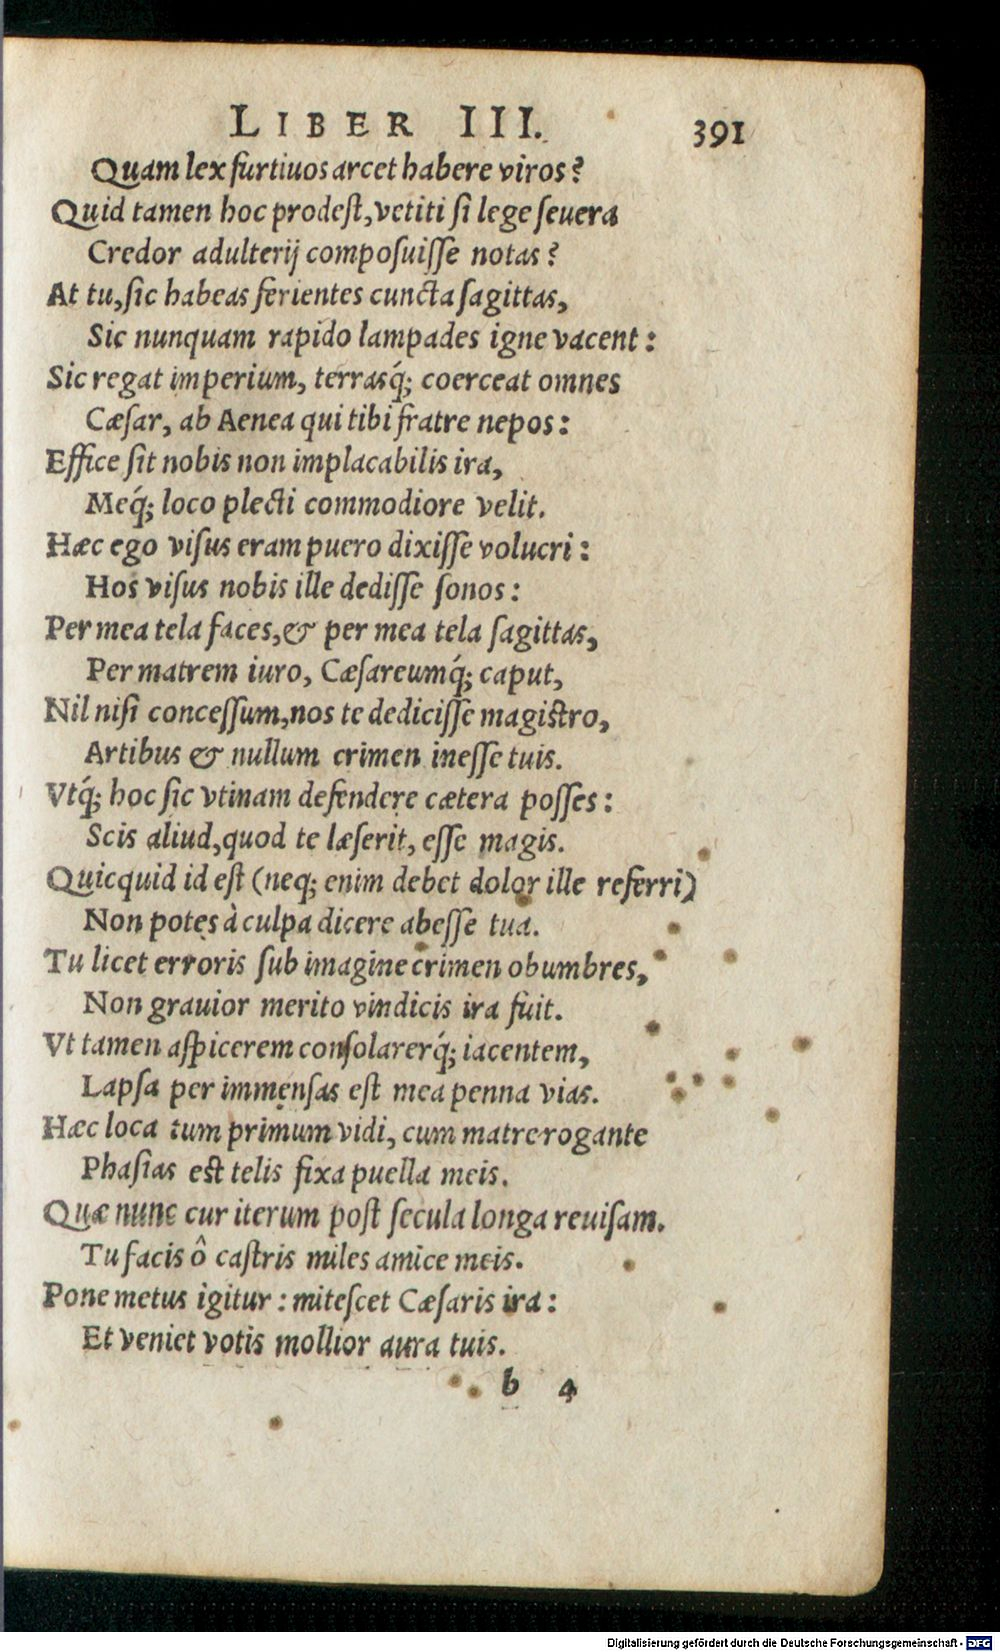 LIBER III. 391
Quam lex furtiuos arcet habere viros?
Quid tamen hoc prodeſt, vetiti ſi lege ſeuera
Credor adulterij compoſuiſſe notas?
At tu, ſic habeas ferientes cuncta ſagittas,
Sic nunquam rapido lampades igne vacent:
Sic regat imperium, terrasq́; coerceat omnes
Cæſar, ab Aenea qui tibi fratre nepos:
Effice ſit nobis non implacabilis ira,
Meq́; loco plecti commodiore velit.
Hæc ego viſus eram puero dixiſſe volucri:
Hos viſus nobis ille dediſſe ſonos:
Per mea tela faces, & per mea tela ſagittas,
Per matrem iuro, Cæſareumq́; caput,
Nil niſi conceſſum, nos te dediciſſe magiſtro,
Artibus & nullum crimen ineſſe tuis.
Vtq́; hoc ſic vtinam defendere cætera poſſes:
Scis aliud, quod te læſerit, eſſe magis.
Quicquid id eſt (neq; enim debet dolor ille referri)
Non potes à culpa dicere abeſſe tua.
Tu licet erroris ſub imagine crimen obumbres,
Non grauior merito vindicis ira fuit.
Vt tamen aſpicerem conſolarerq́; iacentem,
Lapſa per immenſas eſt mea penna vias.
Hæc loca tum primum vidi, cum matre rogante
Phaſias eſt telis fixa puella meis.
Quæ nunc cur iterum poſt ſecula longa reuiſam.
Tu facis ô caſtris miles amice meis.
Pone metus igitur: miteſcet Cæſaris ira:
Et veniet votis mollior aura tuis.
b 4
Digitalisierung gefördert durch die Deutsche Forschungsgemeinschaft - DFG